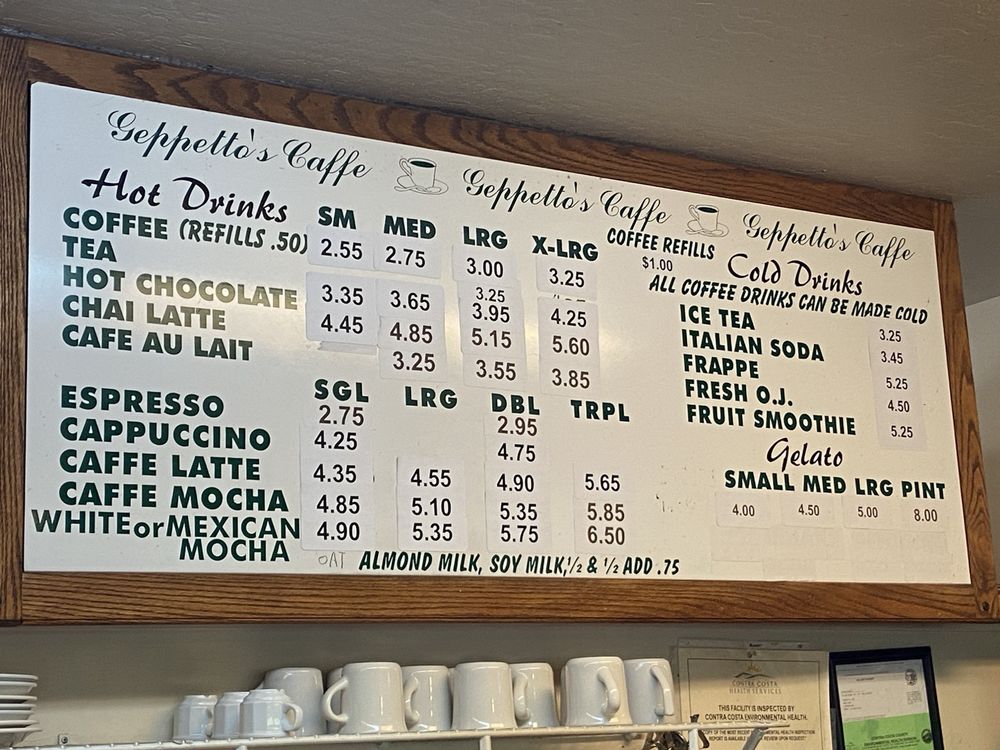 Geppetto's Caffe Geppetto's Caffe Geppetto's Caffe
Hot Drinks SM MED LRG X-LRG
COFFEE (REFILLS .50) 2.55 2.75 3.00 3.25
TEA 3.25
HOT CHOCOLATE 3.35 3.65 3.95 4.25
CHAI LATTE 4.45 4.85 5.15 5.60
CAFE AU LAIT 3.25 3.55 3.85
SGL LRG DBL TRPL
ESPRESSO 2.75 2.95
CAPPUCCINO 4.25 4.75
CAFFE LATTE 4.35 4.55 4.90 5.65
CAFFE MOCHA 4.85 5.10 5.35 5.85
WHITE or MEXICAN 4.90 5.35 5.75 6.50
MOCHA
OAT ALMOND MILK, SOY MILK, ½ & ½ ADD .75
COFFEE REFILLS
$1.00
Cold Drinks
ALL COFFEE DRINKS CAN BE MADE COLD
ICE TEA 3.25
ITALIAN SODA 3.45
FRAPPE 5.25
FRESH O.J. 4.50
FRUIT SMOOTHIE 5.25
Gelato
SMALL MED LRG PINT
4.00 4.50 5.00 8.00
CONTRA COSTA
HEALTH SERVICES
THIS FACILITY IS INSPECTED BY
CONTRA COSTA ENVIRONMENTAL HEALTH.